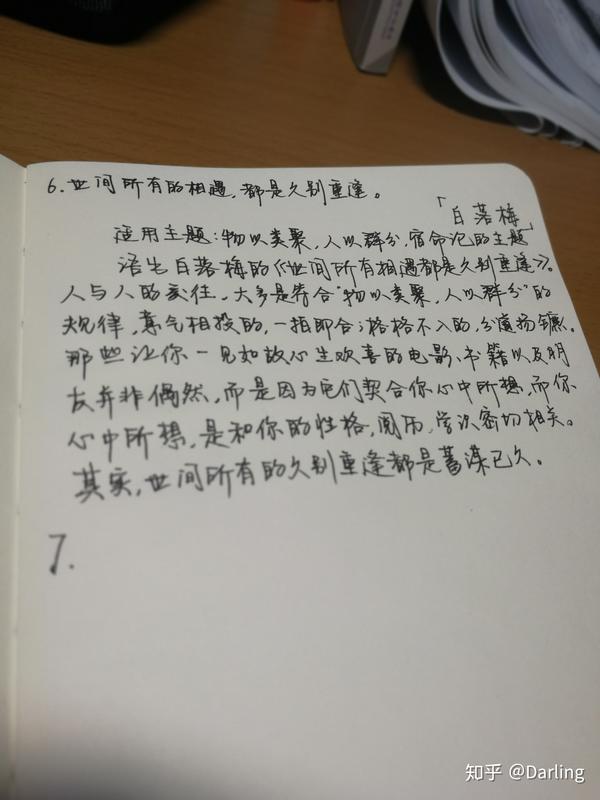 6. 世间所有的相遇，都是久别重逢。
「白落梅」
适用主题：物以类聚，人以群分，宿命论的主题
语出白落梅的《世间所有相遇都是久别重逢》。
人与人的交往，大多是符合“物以类聚，人以群分”的
规律，意气相投的，一拍即合；格格不入的，分道扬镳。
那些让你一见如故心生欢喜的电影、书籍以及朋
友并非偶然，而是因为它们契合你心中所想，而你
心中所想，是和你的性格，阅历，学识密切相关。
其实，世间所有的久别重逢都是蓄谋已久。
7.
知乎 @Darling